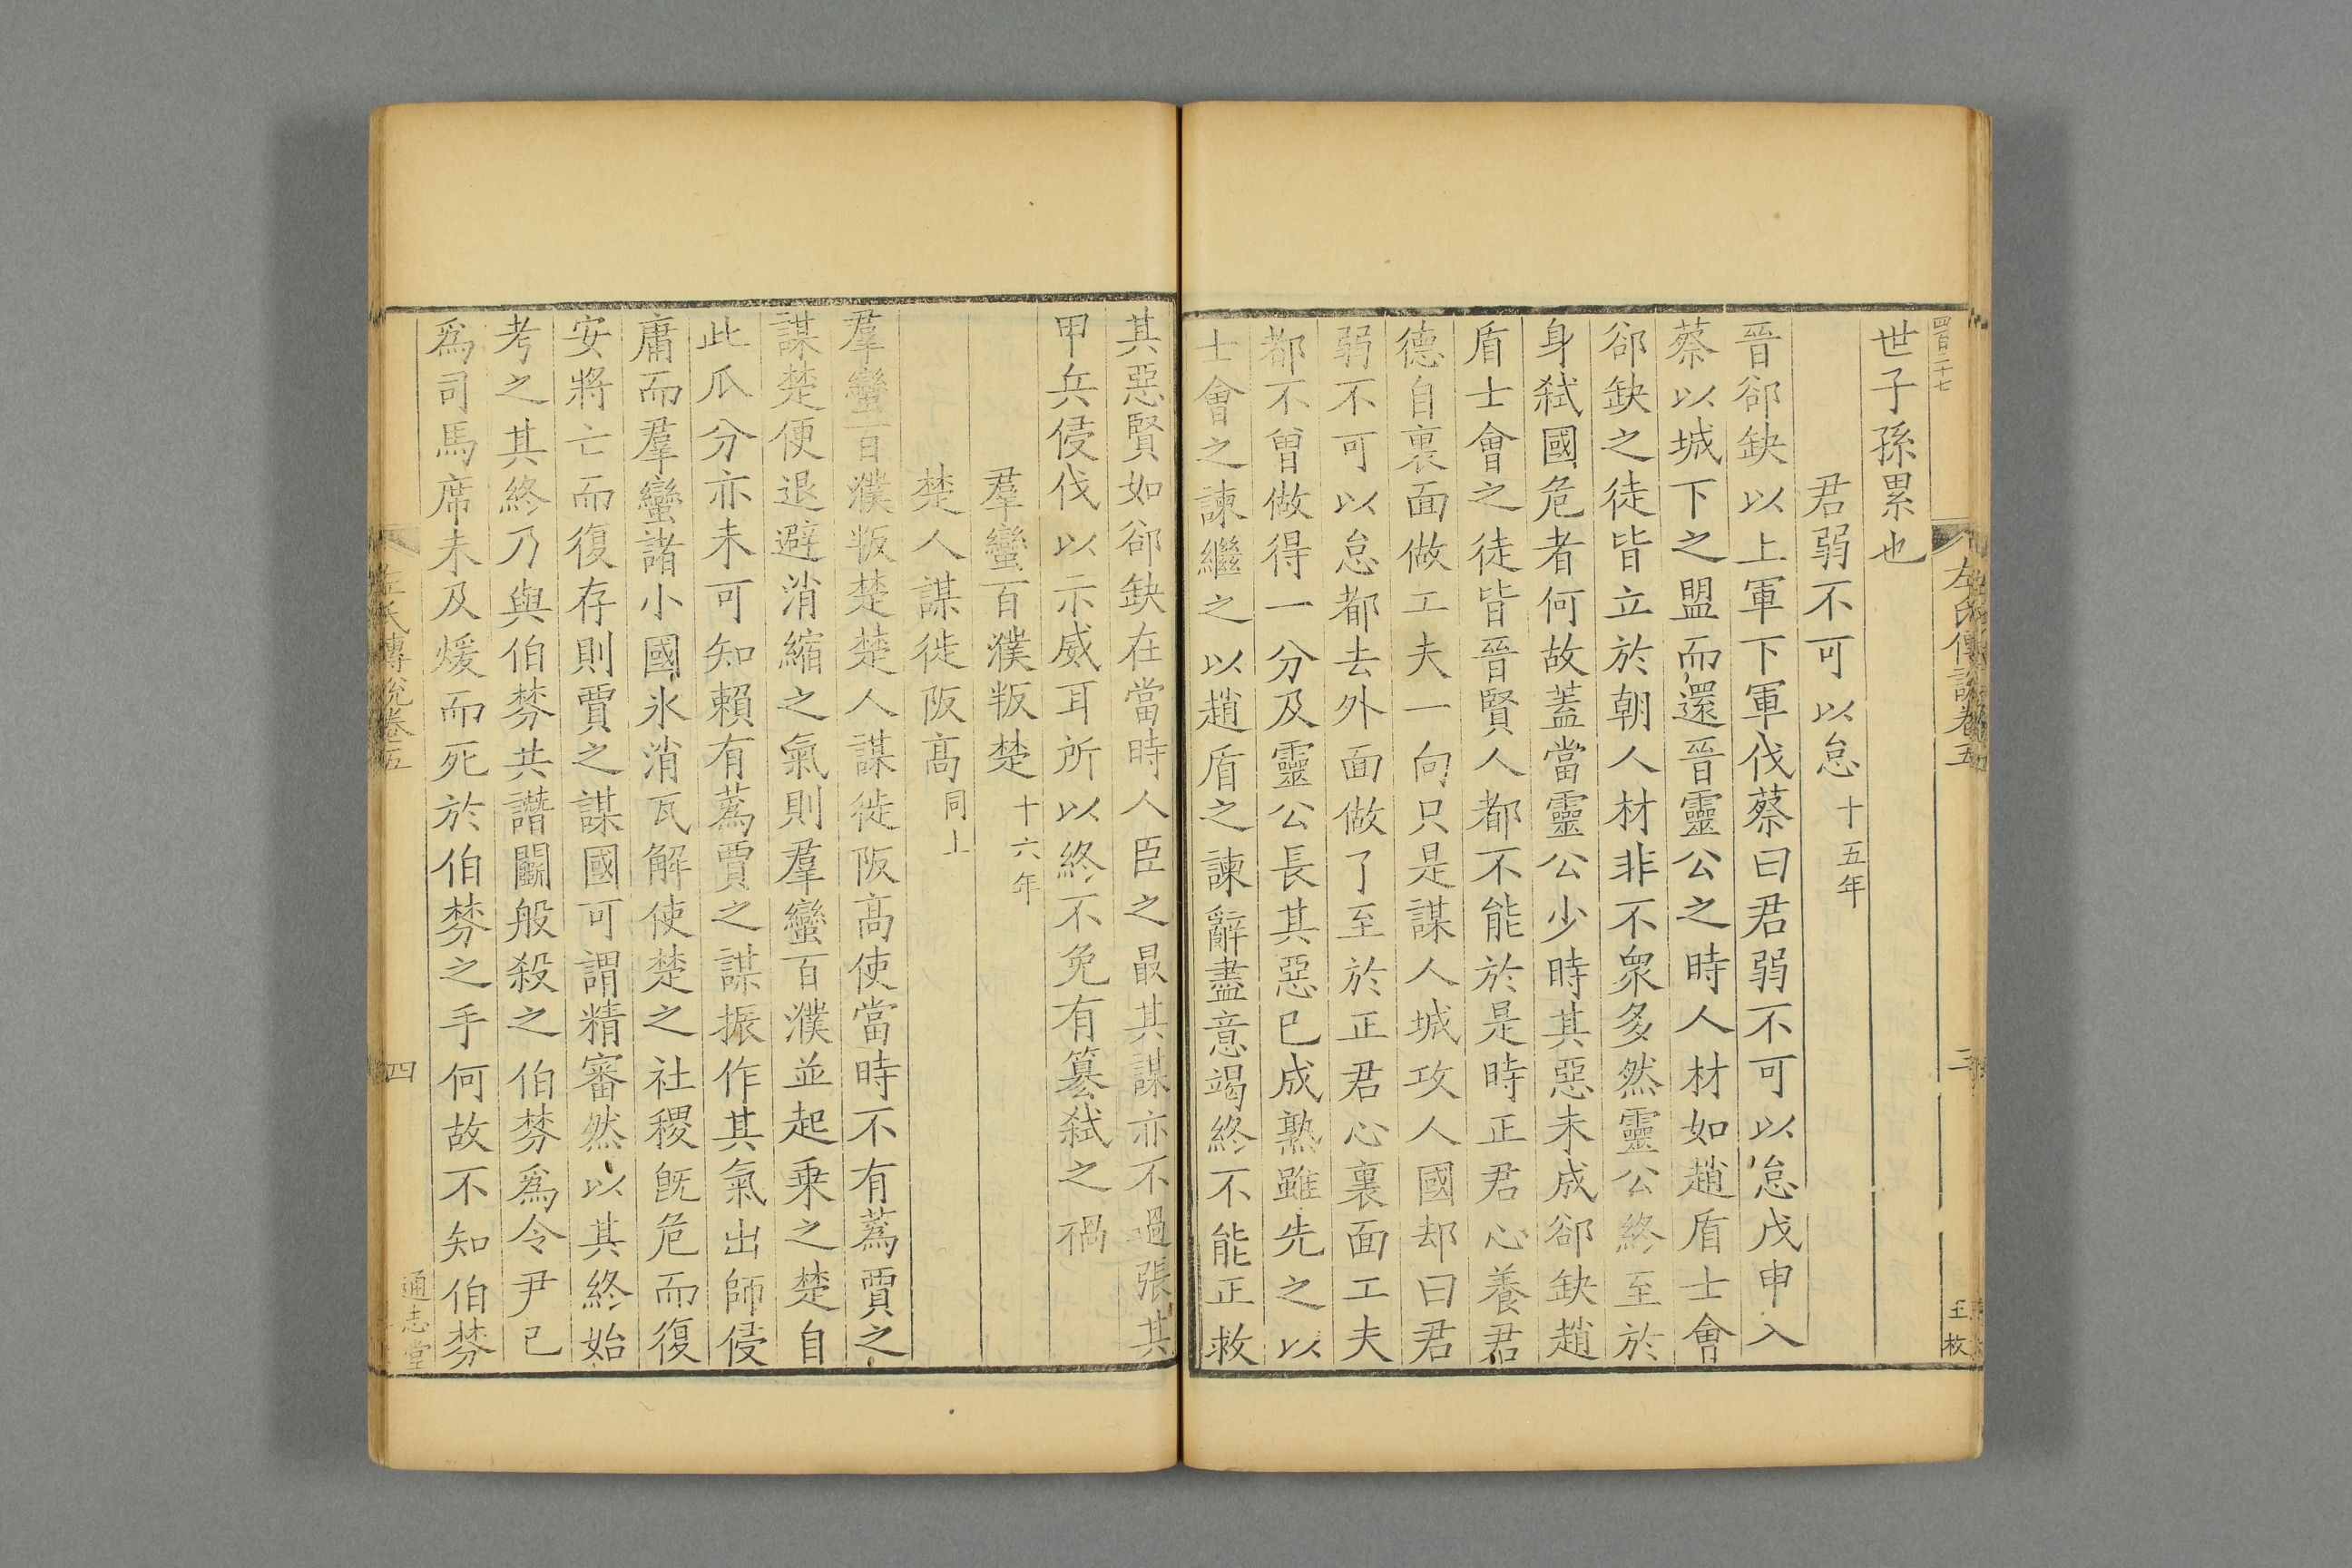 四百二十七
左氏傳說卷五
三
王枚
世子孫累也
君弱不可以怠 十五年
晉郤缺以上軍下軍伐蔡曰君弱不可以怠戊申入
蔡以城下之盟而還晉靈公之時人材如趙盾士會
郤缺之徒皆立於朝人材非不衆多然靈公終至於
身弑國危者何故蓋當靈公少時其惡未成郤缺趙
盾士會之徒皆晉賢人都不能於是時正君心養君
德自裏面做工夫一向只是謀人城攻人國却曰君
弱不可以怠都去外面做了至於正君心裏面工夫
都不曾做得一分及靈公長其惡已成熟雖先之以
士會之諫繼之以趙盾之諫辭盡意竭終不能正救
其惡賢如郤缺在當時人臣之最其謀亦不過張其
甲兵侵伐以示威耳所以終不免有篡弑之禍
羣蠻百濮叛楚 十六年
楚人謀徙阪高 同上
羣蠻百濮叛楚楚人謀徙阪高使當時不有蒍賈之
謀楚便退避消縮之氣則羣蠻百濮並起乗之楚自
此瓜分亦未可知賴有蒍賈之謀振作其氣出師侵
庸而羣蠻諸小國氷消瓦解使楚之社稷旣危而復
安將亡而復存則賈之謀國可謂精審然以其終始
考之其終乃與伯棼共譖鬬般殺之伯棼爲令尹己
爲司馬席未及煖而死於伯棼之手何故不知伯棼
左氏傳說卷五
四
通志堂